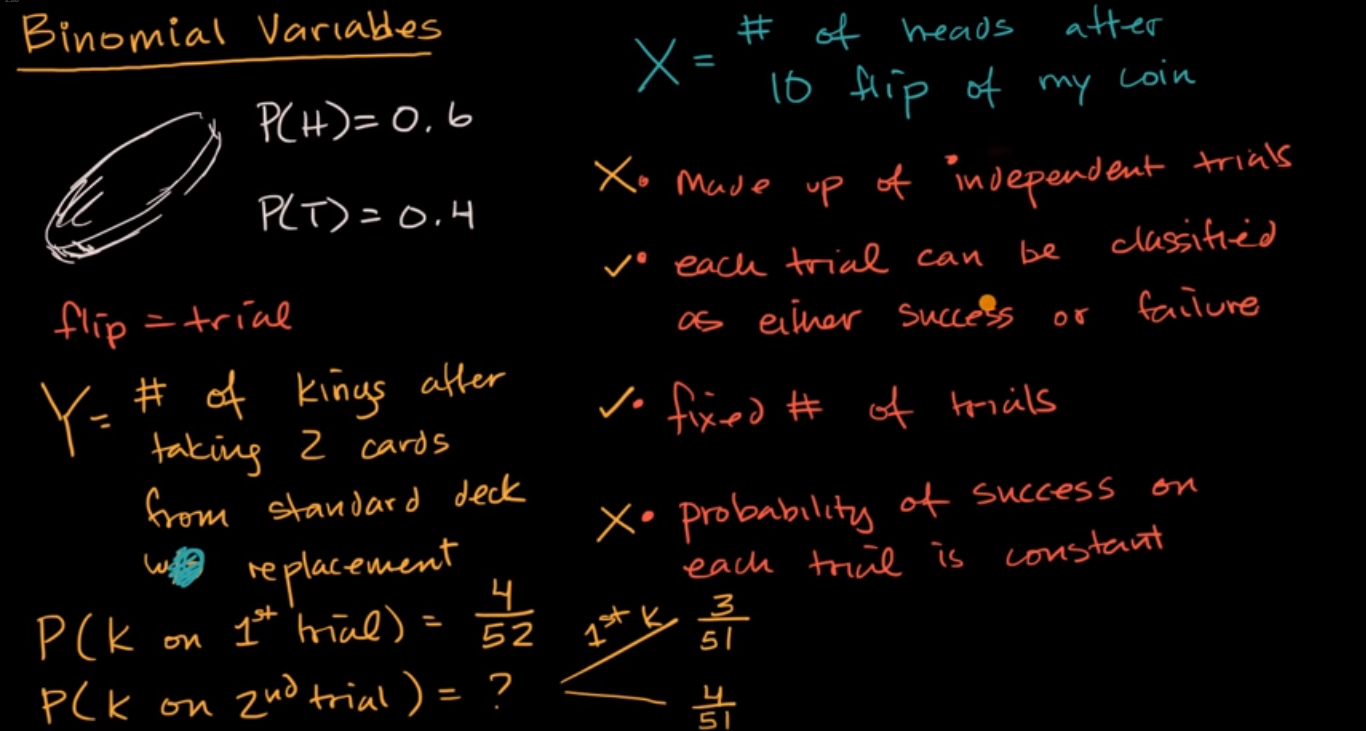 Binomial Variables
P(H) = 0.6
P(T) = 0.4
flip = trial
Y = # of kings after
taking 2 cards
from standard deck
replacement
P(K on 1st trial) = 4/52
P(K on 2nd trial) = ?
1st K
3/51
4/51
X = # of heads after
10 flip of my coin
X • Made up of independent trials
✓ • each trial can be classified
as either success or failure
✓ • fixed # of trials
X • probability of success on
each trial is constant